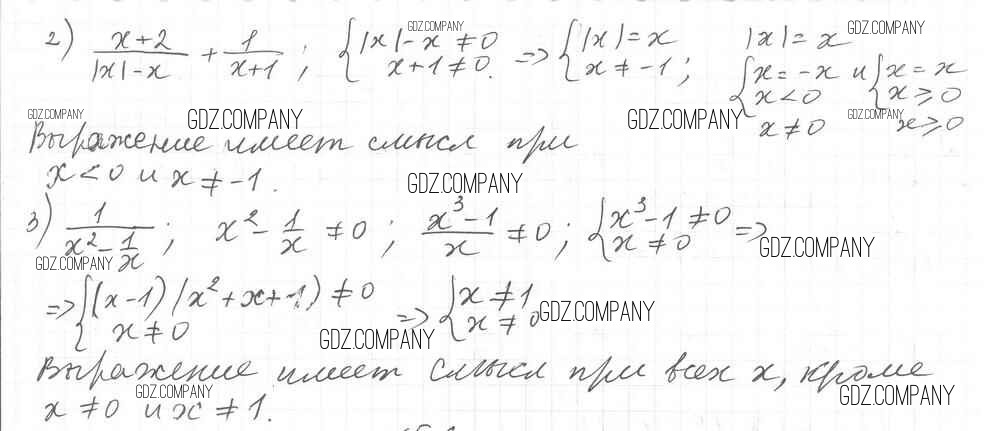 2) (x+2)/(|x|-x) + 1/(x+1) ; { |x|-x ≠ 0 x+1 ≠ 0. => { |x| = x x ≠ -1 ; |x| = x
{ x = -x x < 0 и { x = x x ⩾ 0
x ≠ 0 x ⩾ 0
Выражение имеет смысл при
x < 0 и x ≠ -1.
3) 1/(x² - 1/x) ; x² - 1/x ≠ 0 ; (x³-1)/x ≠ 0 ; { x³-1 ≠ 0 x ≠ 0 =>
=> { (x-1)(x²+x+1) ≠ 0 x ≠ 0 => { x ≠ 1 x ≠ 0
Выражение имеет смысл при всех x, кроме
x ≠ 0 и x ≠ 1.
GDZ.COMPANY
GDZ.COMPANY
GDZ.COMPANY
GDZ.COMPANY
GDZ.COMPANY
GDZ.COMPANY
GDZ.COMPANY
GDZ.COMPANY
GDZ.COMPANY
GDZ.COMPANY
GDZ.COMPANY
GDZ.COMPANY
GDZ.COMPANY